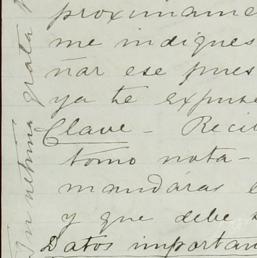 proximame
me indiques
ñar ese pues
ya te expuse
Clave - Recib
tomo nota -
mandáras e
y que debe s
Datos important
grata